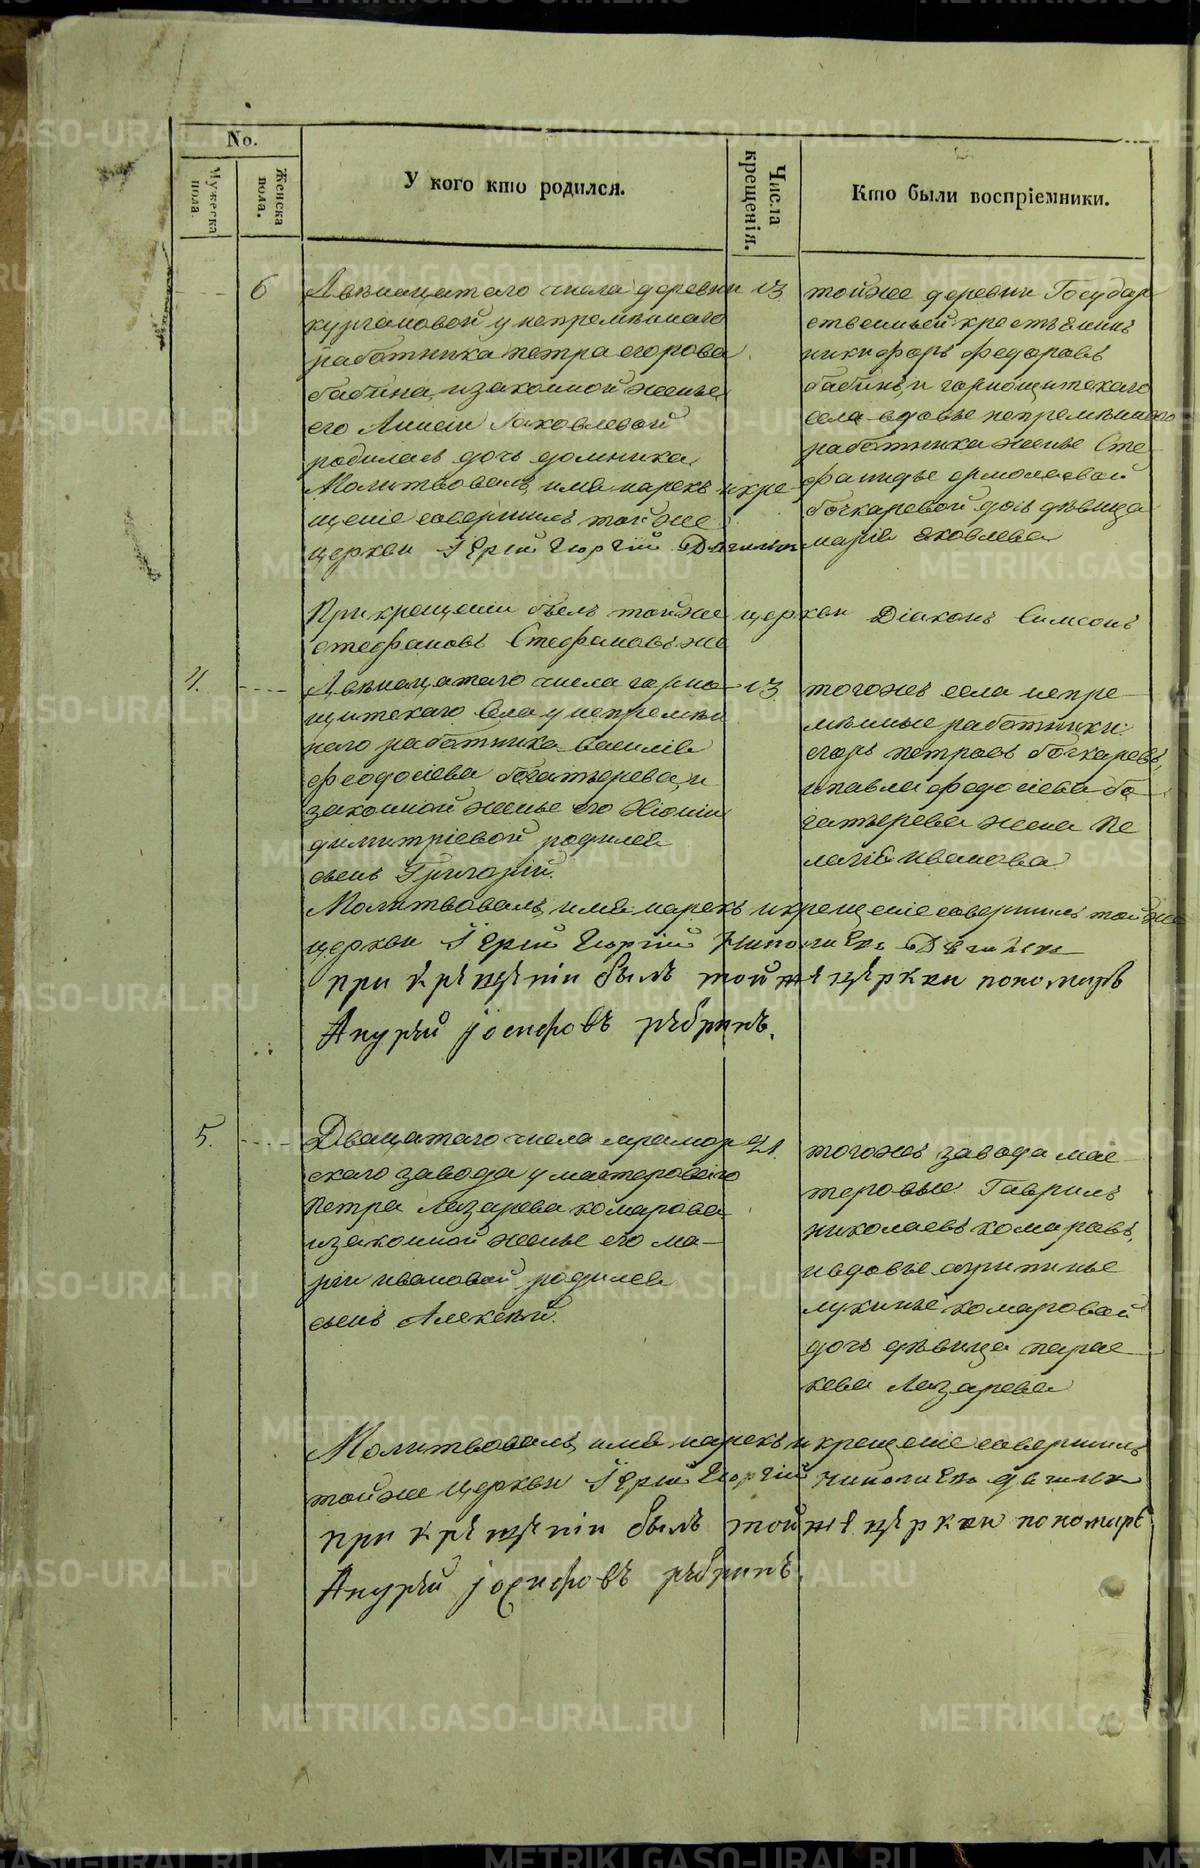 No.
Мужеска пола.
Женска пола.
У кого кто родился.
Числа крещенія.
Кто были воспріемники.
6
Двенацатаго числа деревни
кургановой у непремѣннаго
работника петра егорова
бабина, изаконной женье
его Анны Яковлевой
родилась дочь домника
Молитвовалъ, имя нарекъ икре-
щеніе совершилъ той же
церкви Іерей Георгій
13
тойже деревни Государ
ственный крестьянинъ
никифоръ федоровъ
бабинъ, и горнощитскаго
села вдовье непремѣннаго
работника женье Сте-
фаниды ермолаевой
бочкаревой дочь дѣвица
марія яковлева
При крещеніи былъ тойже церкви Діаконъ Симеонъ
Стефановъ Стефановъ же
4.
Двенацатаго числа горно-
щитскаго Села у непремѣн
наго работника василія
феодосіева богатырева, и
законной женье его Хіоніи
димитріевой родился
сынъ Григорій.
13
тогожъ села непре-
мѣнные работники:
егоръ петровъ бочкаревъ,
ипавла федосіева бо-
гатырева жена Пе
лагія иванова
Молитвовалъ, имя нарекъ икрещеніе совершилъ той же
церкви Іерей Георгій
при крещеніи былъ тойже церкви пономарь
Андрей Іосифовъ
5.
Двацатаго числа мрамор
скаго завода у мастероваго
Петра Лазарева комарова
изаконной женье его ма-
ріи ивановой родился
сынъ Алексѣй.
21.
тогожъ завода мас-
теровые Гаврилъ
николаевъ комаровъ,
ивдовье агрипинье
лукинье комаровой
дочь дѣвица парас-
кева Лазарева
Молитвовалъ, имя нарекъ и крещеніе совершилъ
тойже церкви Іерей Георгій
при крещеніи былъ тойже церкви пономарь
Андрей Іосифовъ
METRIKI.GASO-URAL.RU